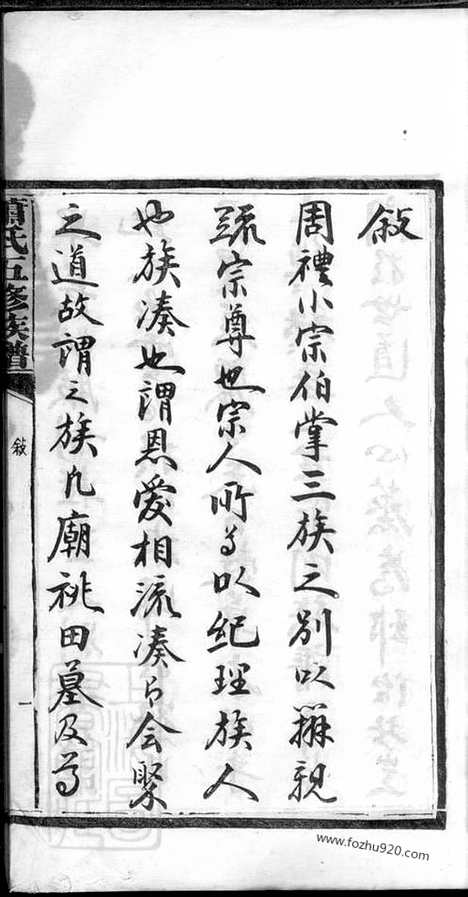 敘
周禮小宗伯掌三族之別以辨親
疏宗尊也宗人所為以紀理族人
也族湊也謂恩愛相流湊以會聚
之道故謂之族凡廟祧田墓及為
蕭氏五修族譜
敘
一
www.fozhu920.com